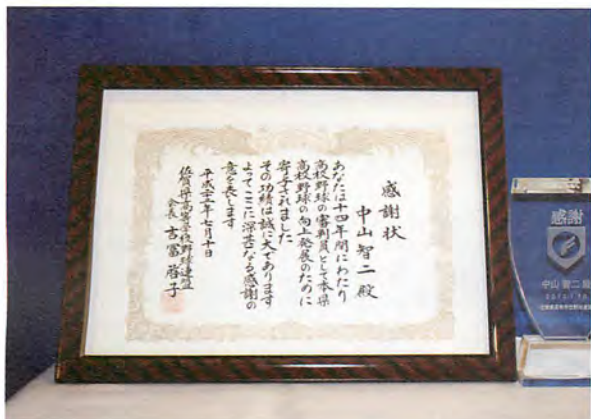 感謝状
中山智二殿
あなたは十四年間にわたり
高校野球の審判員として本県
高校野球の向上発展のために
寄与されました
その功績は誠に大であります
よってここに深甚なる感謝の
意を表します
平成二十二年七月十日
佐賀県高等学校野球連盟
会長 吉冨啓子
感謝
中山智二殿